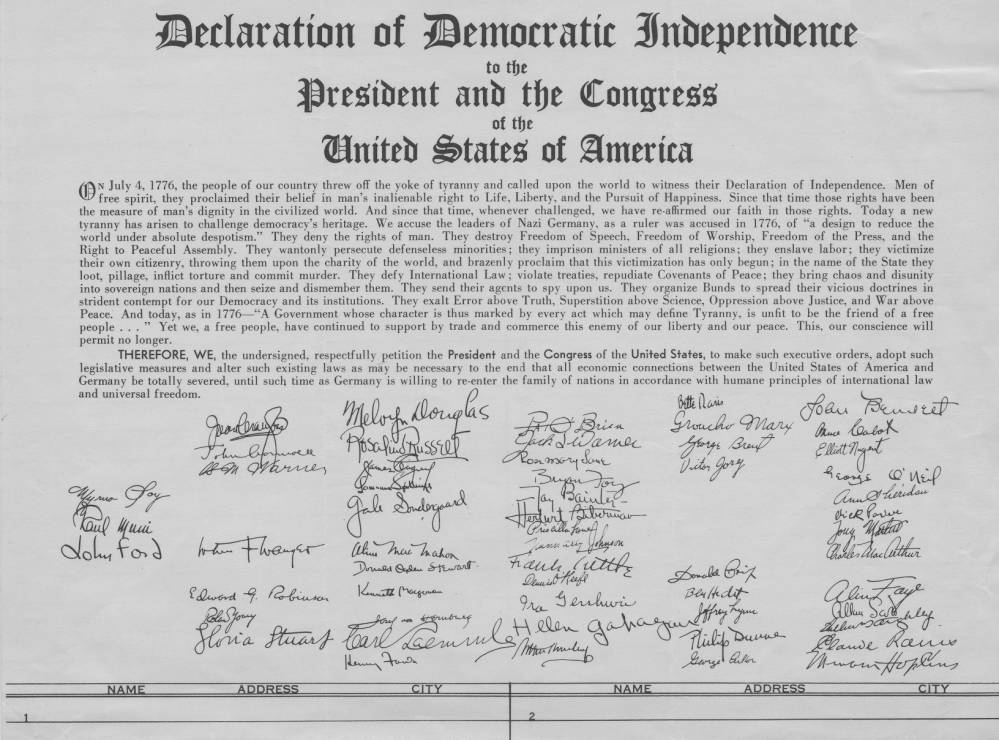 Declaration of Democratic Independence
to the
President and the Congress
of the
United States of America
ON July 4, 1776, the people of our country threw off the yoke of tyranny and called upon the world to witness their Declaration of Independence. Men of
free spirit, they proclaimed their belief in man's inalienable right to Life, Liberty, and the Pursuit of Happiness. Since that time those rights have been
the measure of man's dignity in the civilized world. And since that time, whenever challenged, we have re-affirmed our faith in those rights. Today a new
tyranny has arisen to challenge democracy's heritage. We accuse the leaders of Nazi Germany, as a ruler was accused in 1776, of "a design to reduce the
world under absolute despotism." They deny the rights of man. They destroy Freedom of Speech, Freedom of Worship, Freedom of the Press, and the
Right to Peaceful Assembly. They wantonly persecute defenseless minorities; they imprison ministers of all religions; they enslave labor; they victimize
their own citizenry, throwing them upon the charity of the world, and brazenly proclaim that this victimization has only begun; in the name of the State they
loot, pillage, inflict torture and commit murder. They defy International Law; violate treaties, repudiate Covenants of Peace; they bring chaos and disunity
into sovereign nations and then seize and dismember them. They send their agents to spy upon us. They organize Bunds to spread their vicious doctrines in
strident contempt for our Democracy and its institutions. They exalt Error above Truth, Superstition above Science, Oppression above Justice, and War above
Peace. And today, as in 1776—"A Government whose character is thus marked by every act which may define Tyranny, is unfit to be the friend of a free
people . . ." Yet we, a free people, have continued to support by trade and commerce this enemy of our liberty and our peace. This, our conscience will
permit no longer.
THEREFORE, WE, the undersigned, respectfully petition the President and the Congress of the United States, to make such executive orders, adopt such
legislative measures and alter such existing laws as may be necessary to the end that all economic connections between the United States of America and
Germany be totally severed, until such time as Germany is willing to re-enter the family of nations in accordance with humane principles of international law
and universal freedom.
Myrna Loy
Paul Muni
John Ford
Joan Crawford
H M Warner
Edward G. Robinson
Gloria Stuart
Melvyn Douglas
Rosalind Russell
James Cagney
Gale Sondergaard
Aline MacMahon
Donald Ogden Stewart
Carl Laemmle
Henry Fonda
Pat O'Brien
Jack L Warner
Rosemary Lane
Bryan Foy
Fay Bainter
Herbert Biberman
Priscilla Lane
Frank Tuttle
Dennis O'Keefe
Ira Gershwin
Helen Gahagan
Bette Davis
Groucho Marx
George Brent
Victor Jory
Donald Crisp
Ben Hecht
Philip Dunne
Joan Bennett
Bruce Cabot
Elliott Nugent
George O'Neil
Ann Sheridan
Dick Powell
Tony Martin
Charles MacArthur
Alice Faye
Claude Rains
Miriam Hopkins
NAME ADDRESS CITY NAME ADDRESS CITY
1 2